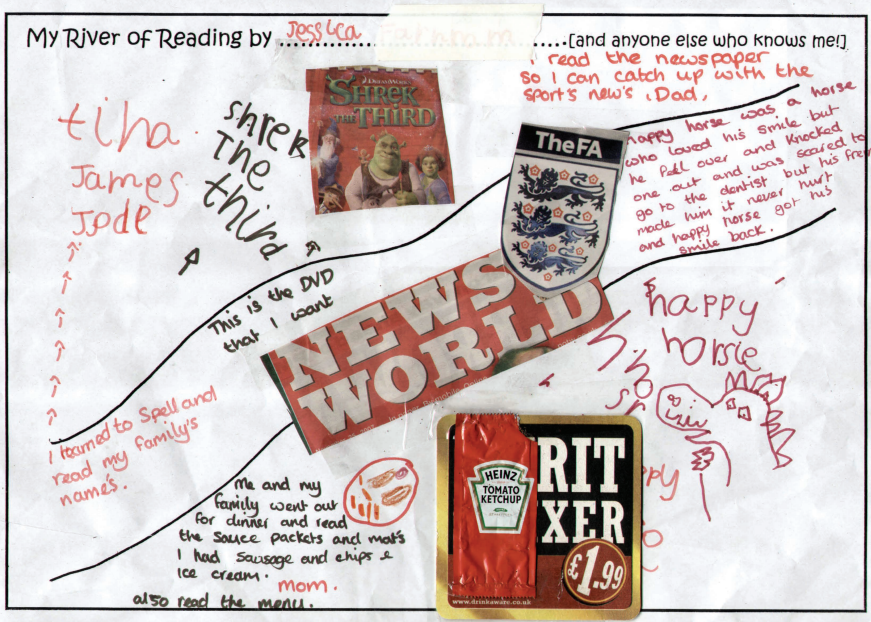 My River of Reading by Jessica .....[and anyone else who knows me!]
I read the newspaper
so I can catch up with the
sport's new's , Dad,
tiha
James
Jode
Shrek
The
third
DREAMWORKS
SHREK
THE THIRD
TheFA
happy horse was a horse
who loved his smile but
he fell over and knocked
one out and was scared to
go to the dentist but his
made him it never hurt
and happy horse got his
smile back.
This is the DVD
that I want
NEWS
WORLD
happy
horsie
I learned to Spell and
read my family's
name's.
Me and my
family went out
for dinner and read
the sauce packets and mats
I had sausage and chips &
Ice cream.
mom.
also read the menu.
HEINZ
TOMATO
KETCHUP
RIT
XER
£1.99
www.drinkaware.co.uk